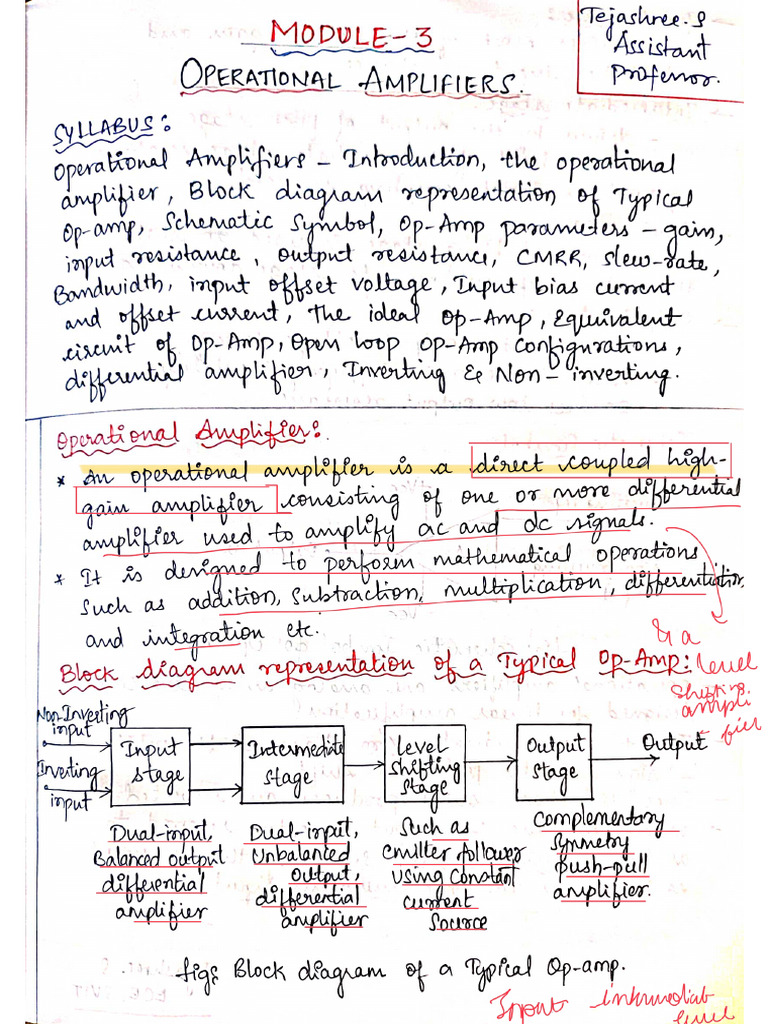 MODULE-3
OPERATIONAL AMPLIFIERS.
Tejashree.S
Assistant
Professor.
SYLLABUS:
Operational Amplifiers - Introduction, the operational
amplifier, Block diagram representation of Typical
Op-amp, Schematic Symbol, Op-Amp parameters - gain,
input resistance, output resistance, CMRR, slew-rate,
Bandwidth, input offset voltage, Input bias current
and offset current, The ideal Op-Amp, Equivalent
circuit of Op-Amp, Open loop Op-Amp configurations,
differential amplifier, Inverting & Non-inverting.
Operational Amplifier:
* An operational amplifier is a direct coupled high-
gain amplifier consisting of one or more differential
amplifier used to amplify ac and dc signals.
* It is designed to perform mathematical operations
such as addition, subtraction, multiplication, differentiation,
and integration etc.
& a
level
shifting
ampli
fier
Block diagram representation of a Typical Op-Amp:
Non-Inverting
input
Inverting
input
Input
stage
Intermediate
stage
Level
shifting
stage
Output
stage
Output
Dual-input,
Balanced output
differential
amplifier
Dual-input,
Unbalanced
output,
differential
amplifier
Such as
emitter follower
using constant
current
source
Complementary
symmetry
push-pull
amplifier.
fig: Block diagram of a Typical Op-amp.
Input intermediate
level